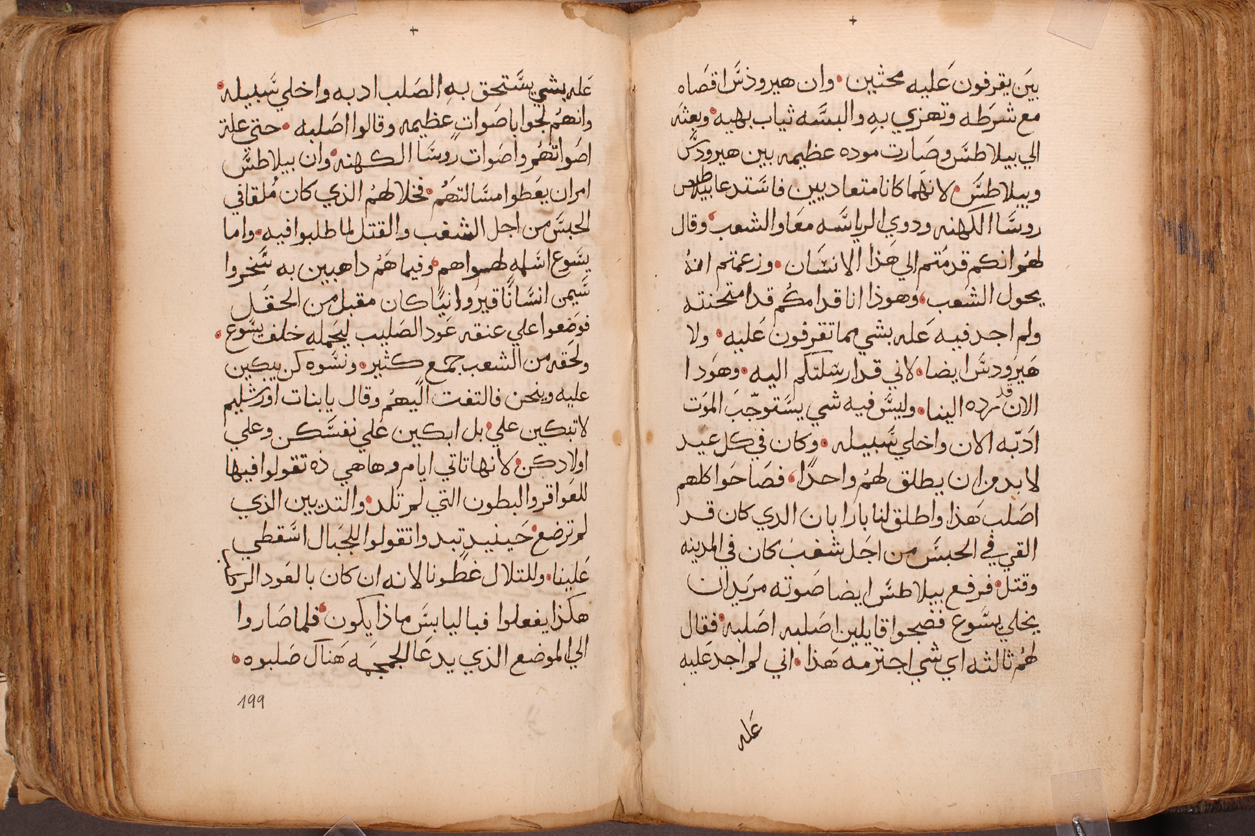 بين يقرفون عليه محثين وان هيروذس اقصاه
مع شرطه وتهزي به والبسه ثياب بهيه وبعثه
الي بيلاطس وصارت موده عظيمه بين هيرودس
وبيلاطس لانهما كانا متعاديين فاستدعا بيلاطس
روسا الكهنه ودوي الرياسه معا والشعب وقال
لهم انكم قدمتم الي هذا الانسان وزعمتم انه
يحول الشعب وهوذا انا قدامكم قد امتحنته
ولم اجد فيه عله بشي مما تقرفون عليه ولا
هيرودس ايضا لاني قد ارسلتكم اليه وهودا
الان قد رده الينا وليس فيه شي يستوجب الموت
ادبه الان واخلي سبيله وكان في كل عيد
لا بد من ان يطلق لهم واحدا فصاحوا كلهم
اصلب هذا واطلق لنا بارابان الدي كان قد
القي في الحبس من اجل شغب كان في المدينه
وقتل فرفع بيلاطس ايضا صوته مريدا ان
يخلي يسوع فصيحوا قايلين اصلبه اصلبه فقال
لهم ثالثه اي شي اجترمه هذا اني لم اجد عليه
عله
عله بشي يستحق به الصلب ادبه واخلي سبيله
وانهم لجوا باصوات عظيمه وقالوا اصلبه حتي علة
اصواتهم واصوات روسا الكهنه وان بيلاطس
امر ان يعطوا مسالتهم فخلا لهم الذي كان ملقا في
الحبس من اجل الشغب والقتل لما طلبوا فيه واما
يسوع اسلمه لهواهم وفيما هم داهبين به سخروا
سيمن انسانا قيروانيا كان مقبل من الحقل
فوضعوا علي عنقه عود الصليب ليحمله خلف يسوع
ولحقه من الشعب جمع كثير ونسوه كن يبكين
عليه وينحن فالتفت اليهم وقال يا بنات اورشليم
لا تبكين علي بل ابكين علي نفسكن وعلي
اولادكن لانها تاتي ايام وها هي ذه تقولوا فيها
للعواقر والبطون التي لم تلد والتديين الذي
لم ترضع حينيد تبدوا تقولوا للجبال اسقطي
علينا وللتلال غطونا لانه ان كان بالعود الركاب
هكذا يفعلوا فباليابس ماذا يكون فلما صاروا
الي الموضع الذي يدعا الجمجمه هناك صلبوه
199